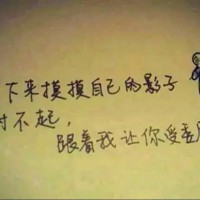 下来摸摸自己的影子
对不起,
跟着我让你受委